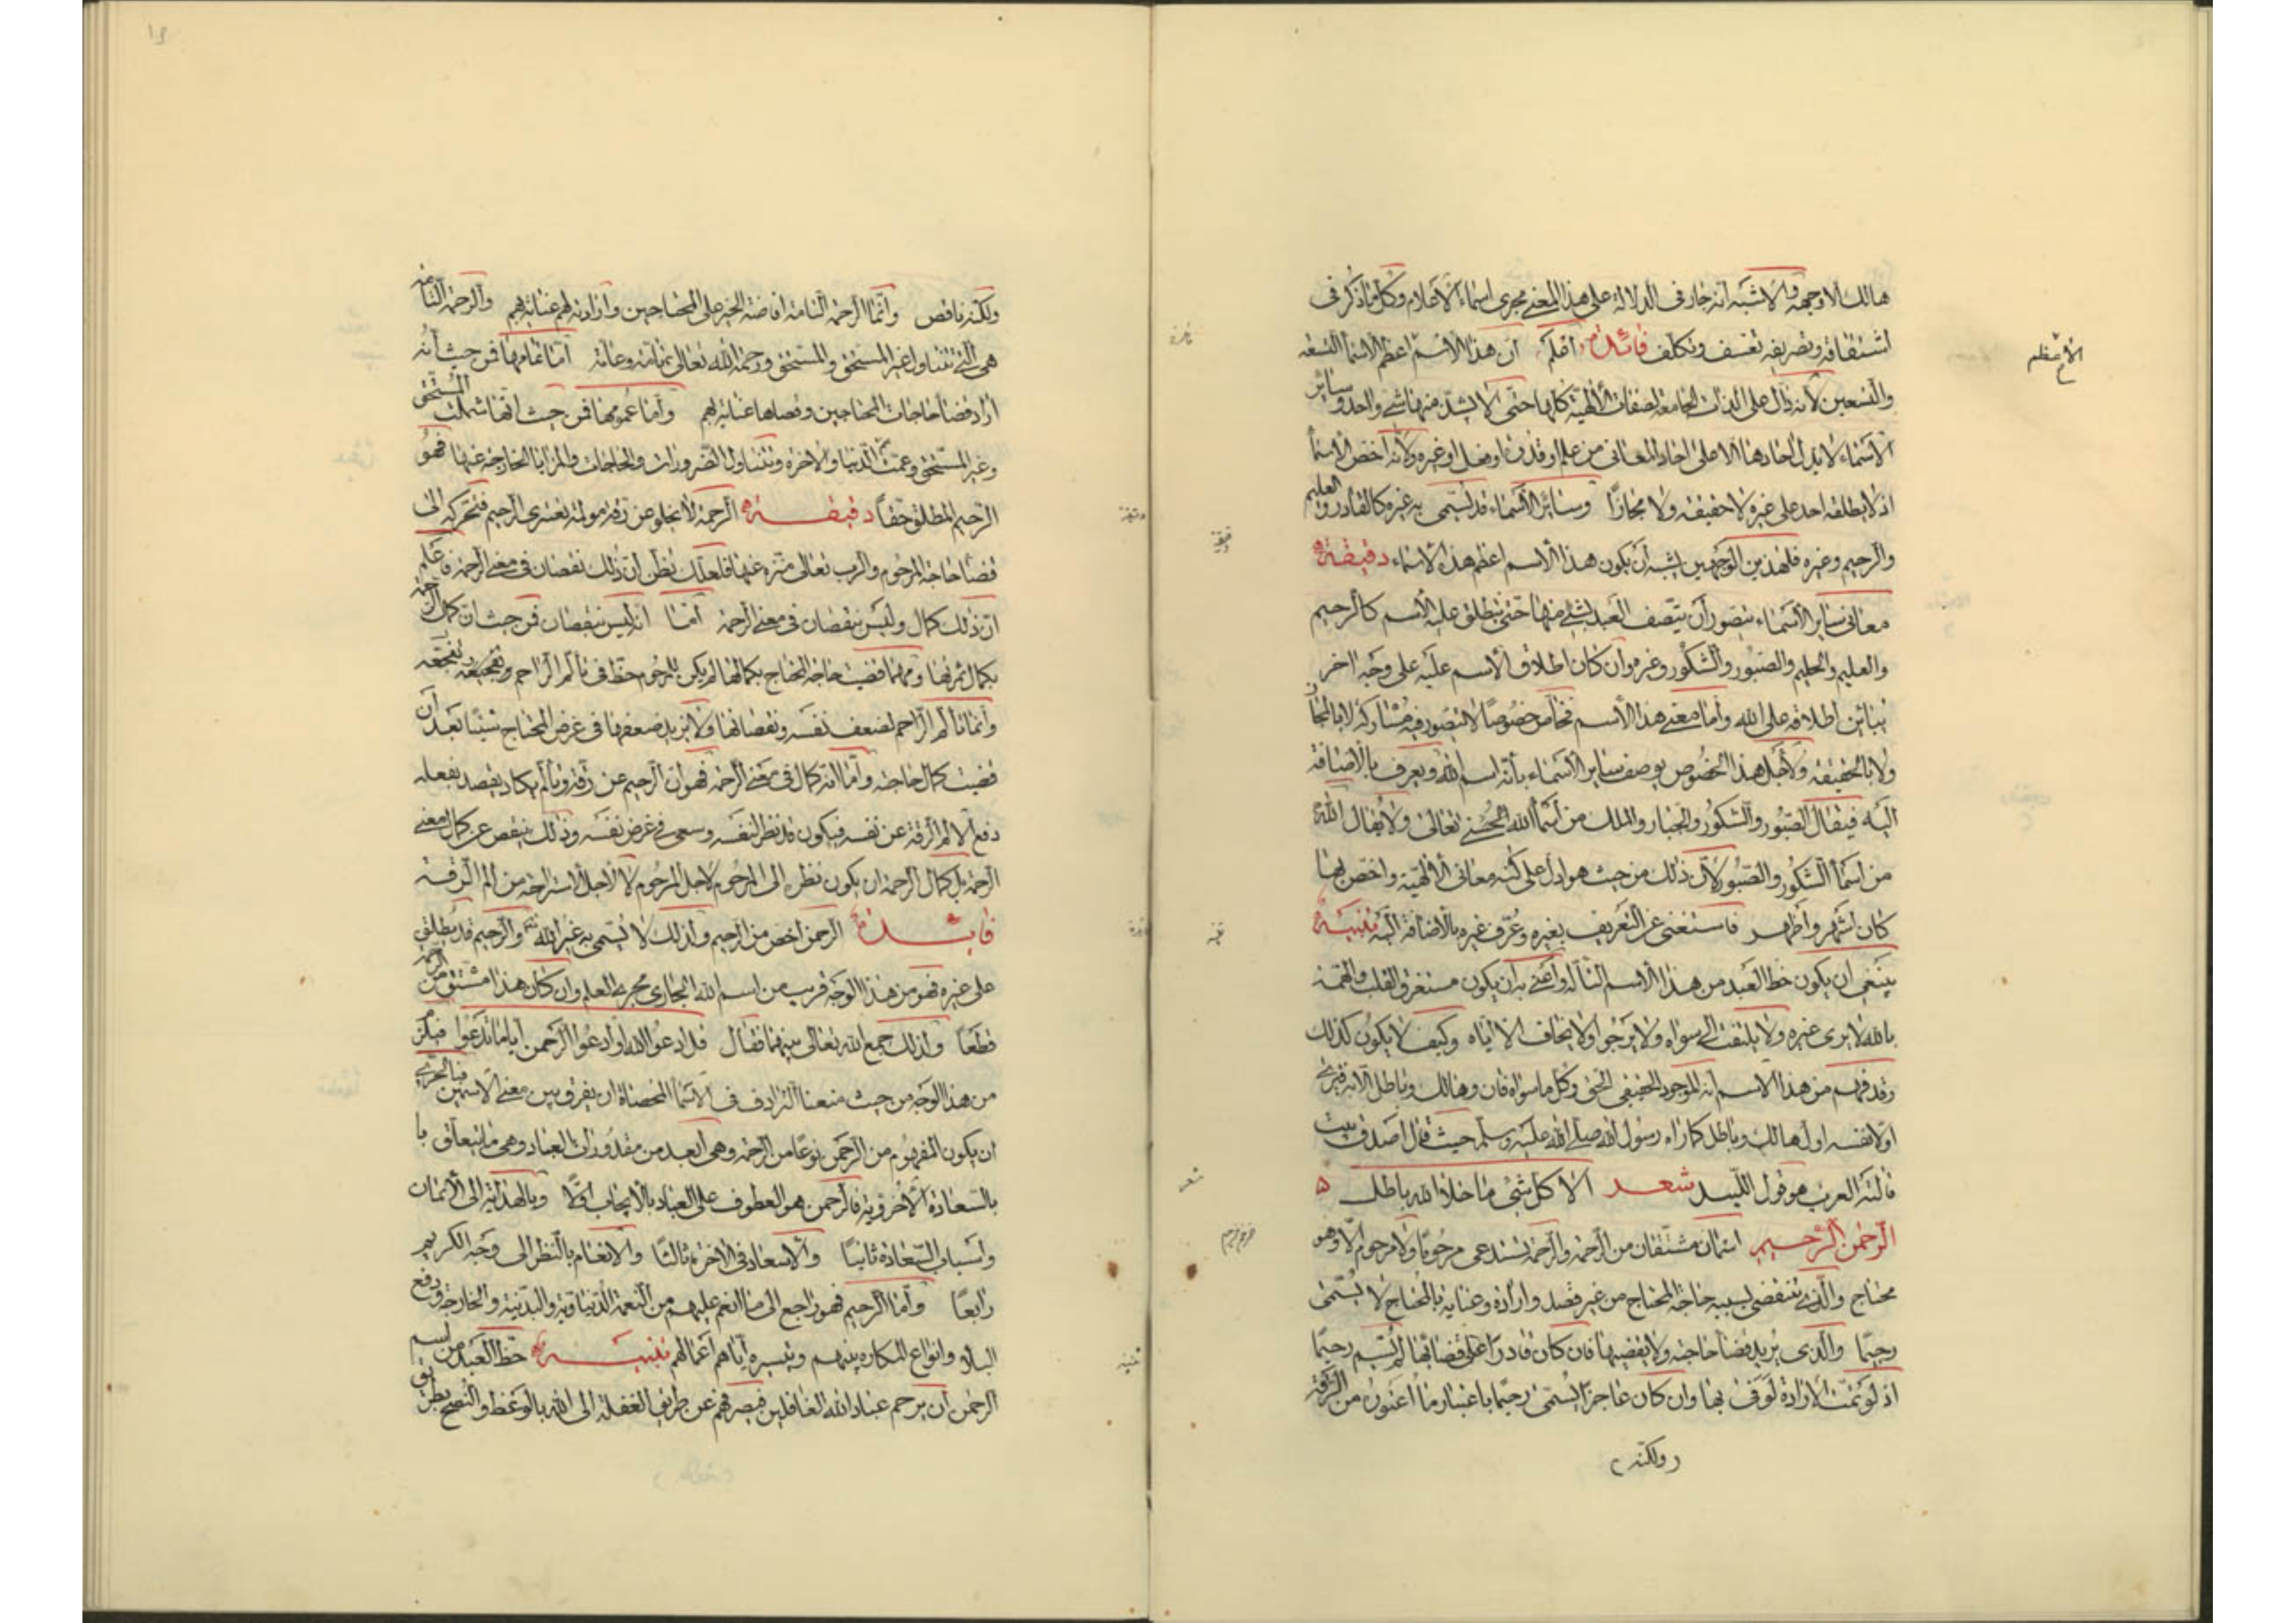 هالك الا وجهه والاشبه انه جار فى الدلالة على هذا المعنى مجرى اسماء الاعلام وكل ما ذكر فى
اشتقاقه وتصريفه تعسف وتكلف فائدة اعلم ان هذا الاسم اعظم الاسماء التسعة
والتسعين لانه دال على الذات الجامعة لصفات الالهية كلها حتى لا يشذ منها شئ واحد وساير
الاسماء لا يدل احادها الا على احاد المعانى من علم او قدرة او فعل او غيره ولانه اخص الاسماء
اذ لا يطلقه احد على غيره لا حقيقة ولا مجازا وساير الاسماء قد تسمى به غيره كالقادر والعليم
والرحيم وغيره فلهذين الوجهين يشبه ان يكون هذا الاسم اعظم هذه الاسماء دقيقة
معانى ساير الاسماء يتصور ان يتصف العبد بشئ منها حتى ينطلق عليه الاسم كالرحيم
والعليم والحليم والصبور والشكور وغيره وان كان اطلاق الاسم عليه على وجه اخر
يباين اطلاقه على الله واما معنى هذا الاسم فخاص خصوصا لا يتصور فيه مشاركة لا بالمجاز
ولا بالحقيقة ولاجل هذا الخصوص يوصف ساير الاسماء بانه اسم الله ويعرف بالاضافة
اليه فيقال الصبور والشكور والجبار والملك من اسماء الله الحسنى تعالى ولا يقال الله
من اسماء الشكور والصبور لان ذلك من حيث هو ادل على كنه معانى الالهية واختص بها
كان اشهر واظهر فاستغنى عن التعريف بغيره وعرف غيره بالاضافة اليه تنبيه
ينبغى ان يكون حظ العبد من هذا الاسم التأله واعنى به ان يكون مستغرق القلب والهمة
بالله لا يرى غيره ولا يلتفت الى سواه ولا يرجوا ولا يخاف الا اياه وكيف لا يكون كذلك
وقد فهم من هذا الاسم انه الموجود الحقيقى الحق وكل ما سواه فان وهالك وباطل الا به فيرى
اولا نفسه اول هالك وباطل كما راه رسول الله صلى الله عليه وسلم حيث قال اصدق بيت
قالته العرب هو قول اللبيد شعر الا كل شئ ما خلا الله باطل
الرحمن الرحيم اسمان مشتقان من الرحمة والرحمة تستدعى مرحوما ولا مرحوم الا وهو
محتاج والذى تنقضى بسببه حاجة المحتاج من غير قصد وارادة وعناية بالمحتاج لا يسمى
رحيما والذى يريد قضاء حاجته ولا يقضيها فان كان قادرا على قضائها لم يسم رحيما
اذ لو تمت الارادة لوفى بها وان كان عاجزا يسمى رحيما باعتبار ما اعتوره من الرقة
ولكنه
الاعظم
ولكنه ناقص وانما الرحمة التامة افاضة الخير على المحتاجين وارادته لهم عناية بهم والرحمة التامة
هى التى تتناول غير المستحق والمستحق ورحمة الله تعالى تامة وعامة اما تمامها فمن حيث انه
اراد قضاء حاجات المحتاجين وقضاها عناية بهم واما عمومها فمن حيث انها شملت المستحق
وغير المستحق وعمت الدنيا والاخرة وتتناول الضرورات والحاجات والمزايا الخارجة عنها فهو
الرحيم المطلق حقا دقيقة الرحمة لا يخلو عن رقة مولمة تعترى الرحيم فتحركه الى
قضاء حاجة المرحوم والرب تعالى منزه عنها فلعلك تظن ان ذلك نقصان فى معنى الرحمة فاعلم
ان ذلك كمال وليس بنقصان فى معنى الرحمة اما انه ليس بنقصان فمن حيث ان كمال الرحمة
بكمال ثمرتها ومهما قضيت حاجة المحتاج بكمالها لم يكن للمرحوم حظ فى تألم الراحم وتفجعه
وانما تألم الراحم لضعف نفسه ونقصانها ولا يزيد ضعفها فى غرض المحتاج شيئا بعد ان
قضيت كمال حاجته واما انه كمال فى معنى الرحمة فهو ان الرحيم عن رقة وتألم يكاد يقصد بفعله
دفع الالم الرقة عن نفسه فيكون قد نظر لنفسه وسعى فى غرض نفسه وذلك ينقص عن كمال معنى
الرحمة بل كمال الرحمة ان يكون نظره الى المرحوم لاجل المرحوم لا لاجل استراحته من الم الرقة
فائدة الرحمن اخص من الرحيم ولذلك لا يسمى به غير الله والرحيم قد يطلق
على غيره فهو من هذا الوجه قريب من اسم الله الجارى مجرى العلم وان كان هذا مشتق من الرحمة
قطعا ولذلك جمع الله تعالى بينهما فقال قل ادعوا الله او ادعوا الرحمن اياما تدعوا فيلزم
من هذا الوجه من حيث منعنا الترادف فى الاسماء المحصاة ان يفرق بين معنى الاسمين فبالحرى
ان يكون المفهوم من الرحمن نوعا من الرحمة وهى ابعد من مقدورات العباد وهى ما يتعلق با
بالسعادة الاخروية فالرحمن هو العطوف على العباد بالايجاب اولا وبالهداية الى الايمان
واسباب السعادة ثانيا والاسعاد فى الاخرة ثالثا والانعام بالنظر الى وجه الكريم
رابعا واما الرحيم فهو راجع الى ما انعم عليهم من النعمة الدنياوية والبدنية والخارجة ودفع
البلاء وانواع المكاره بينهم وتيسيره اياهم اعمالهم تنبيه حظ العبد من اسم
الرحمن ان يرحم عباد الله الغافلين فيصرفهم عن طريق الغفلة الى الله بالوعظ والنصح بطريق